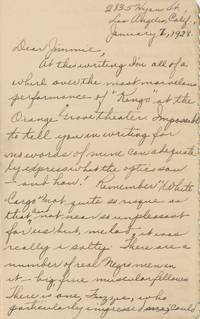 2835 Wynn St
Los Angeles, Calif.,
January 6, 1928.
Dear Jimmie,
At this writing I'm all of a
whirl over the most marvelous
performance of "Kongo" at the
Orange Grove theater. Impossible
to tell you in writing for
no words of mine can adequate-
ly express what the optics saw
- and how! Remember "White
Cargo" Not quite so risque as
that, and not near so unpleasant
for us but, me lad, it was
really so salty. There are a
number of real Negro men in
it - big fine muscular fellows
There is one, who
particularly impressed could